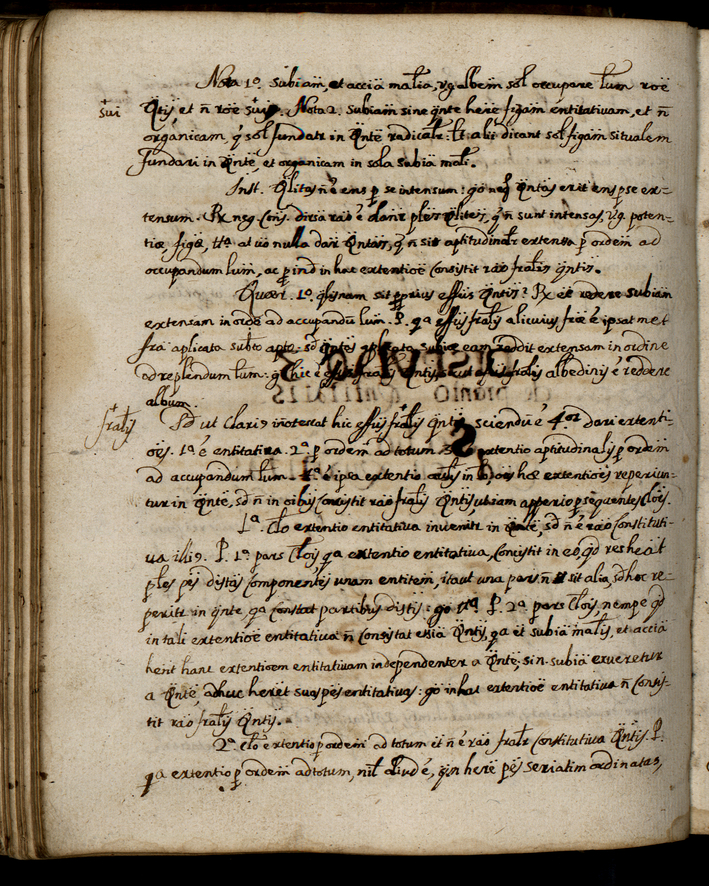 Nota 1º. subiam, et accia malia, vg albem sol occupare lum roe
sui
Qtis, et ñ roe sui. Nota 2. subiam sine qnte here figam entitativam, et ñ
organicam, q sol fundatr in Qnte radicalr. Et alii dicant sol figam situalem
fundari in Qnte, et organicam in sola subia mali.
Inst. Qlitas ñ é ens p se intensum: go neq Qntas erit ens p se ex-
tensum. Rx neg. Cons. diria rao é darir ples qlites, q ñ sunt intensas, vg. poten-
tia, figa, ttª at vo nulla dari Qntas, q ñ sit aptitudinalr extensa p ordem ad
occupandum lum, ac p ind in hac extentioe Consistit rao fralis qntis.
Quaer. 1º. qlisnam sit pprius effus Qntis? Rx ee redere subiam
extensam in orde ad accupandu lum. P. qa effus fralis alicuius frae é ipsamet
fra aplicata subto apto: sd qntas aplicata subiae eam reddit extensam in ordine
ad replendum lum: go hic é effus fralis Qntis, sicut effus fralis albedinis é reddere
album.
fralis
Sd ut Clarius inotescat hic effus fralis qntis, sciendu é 4or dari extenti-
oes. 1ª é entitativa. 2ª p ordem ad totum. 3ª extentio aptitudinalis p ordem
ad accupandum lum. 4ª é ipsa extentio actlis in lo: oes hae extentioes reperiun-
tur in Qnte, sd ñ in oibus Consistit rao fralis Qntis, ut iam apperio p sequentes Clois.
1ª. Clo extentio entitativa invenitr in Qnte, sd ñ é rao Constituti-
va illius. P. 1ª pars Clois qa extentio entitativa, Consistit in eo, qd res heat
ples pes distas componentes unam entitem, itaut una pars ñ sit alia, sd hoc re-
peritr in qnte, qa constat partibus distis: go ttª P. 2ª pars Clois, nempe qd
in tali extentioe entitativa ñ Consistat esia Qntis, qa et subia malis, et accia
hent hanc extentioem entitativam independenter a Qnte, sin. subia exueretur
a Qnte adhuc heret suas pes entitativas: go in hac extentioe entitativa ñ Consis-
tit rao fralis Qntis.
2ª. Clo extentio p ordem ad totum et ñ é rao fralr Constitutiva Qntis. P.
qa extentio p ordem ad totum, nil aliud é, qm here pes seriatim ordinatas,